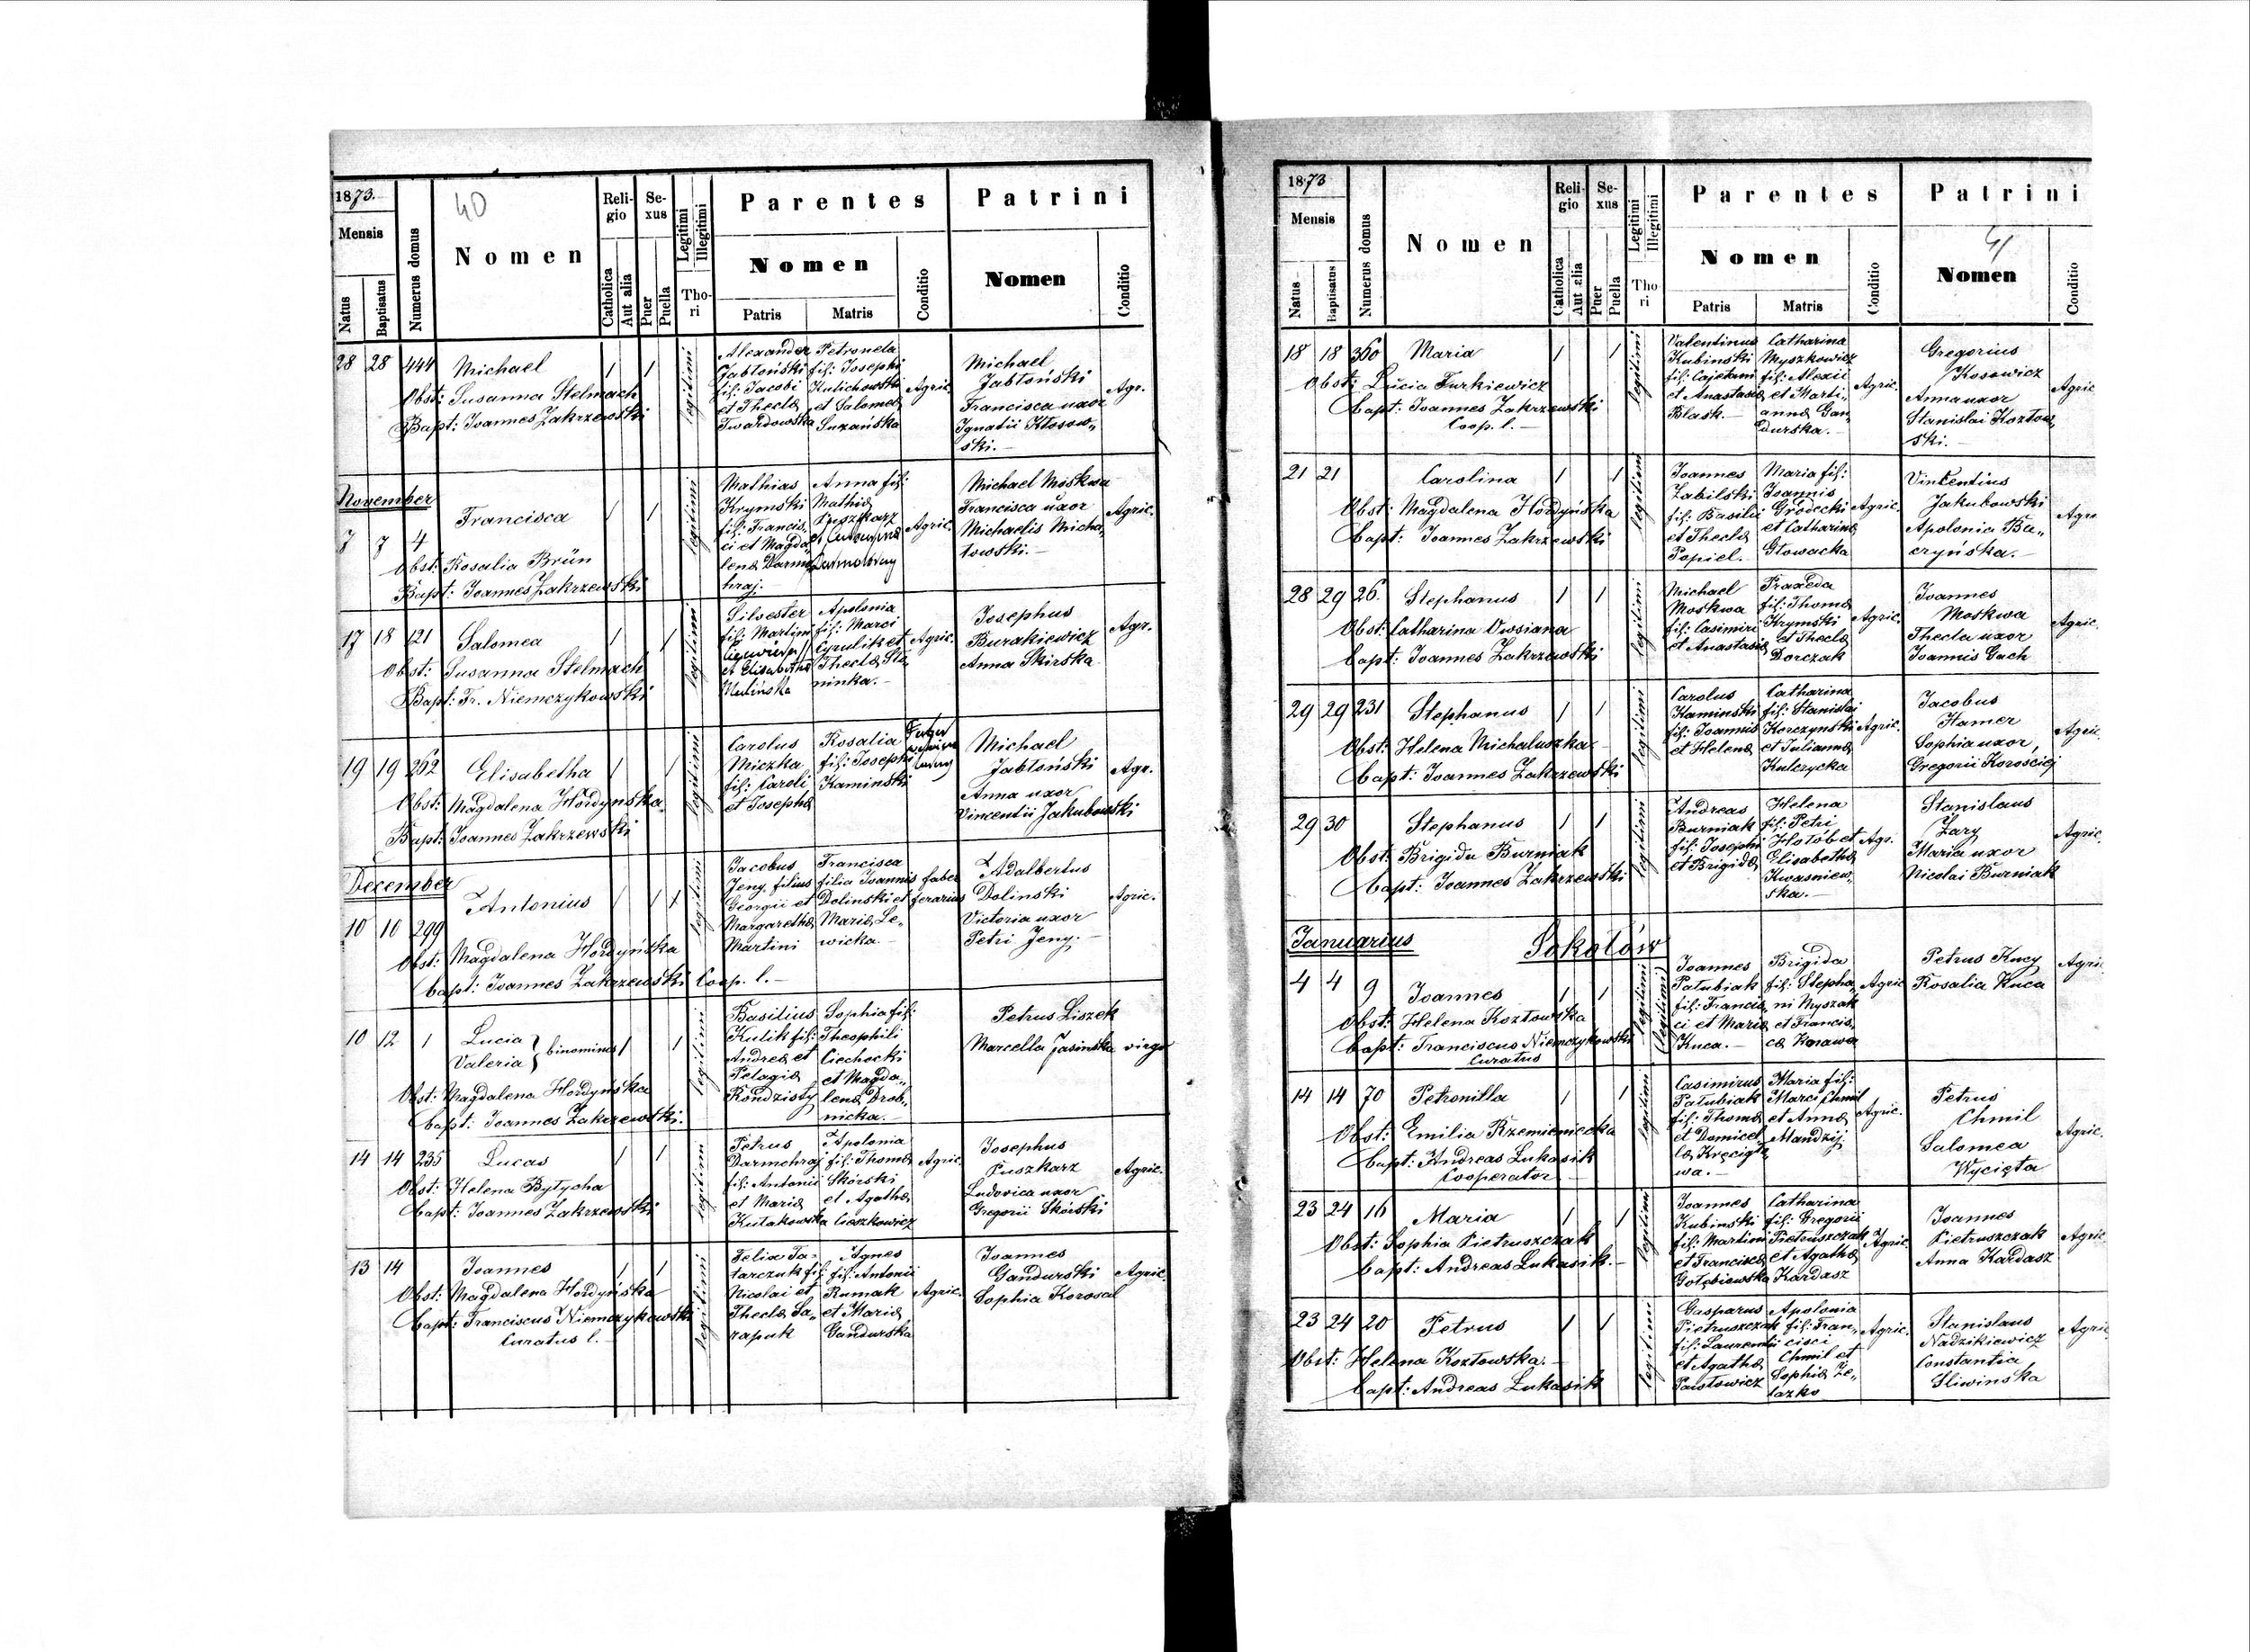 1873.
40
Mensis
Natus
Baptisatus
Numerus domus
Nomen
Religio
Catholica
Aut alia
Sexus
Puer
Puella
Legitimi
Illegitimi
Thori
Parentes
Nomen
Patris
Matris
Conditio
Patrini
Nomen
Conditio
28 28 444 Michael 1 1 legitimi
Obst: Susanna Stelmach
Bapt: Joannes Zakrzewski
Alexander
Jabłoński
fil: Jacobi
et Thecla
Twardowska
Petronela
fil: Josephi
Kulichowski
et Salomea
Suzańska
Agric.
Michael
Jabłoński
Francisca uxor
Ignatii Kłosow„
ski.—
Agr.
November
7 7 4 Francisca 1 1 legitimi
Obst: Rosalia Brün
Bapt: Joannes Zakrzewski
Mathias
Krymski
fil: Francis„
ci et Magda„
lena Darmo„
hraj.
Anna fil:
Mathia
Puszkarz
Agric.
Michael Moskwa
Francisca uxor
Michaelis Micha„
łowski.—
Agric.
17 18 121 Salomea 1 1 legitimi
Obst: Susanna Stelmach
Bapt: Fr. Niemczykowski
Silvester
fil: Martini
et Elisabetha
Apolonia
fil: Marci
Cyrulik et
Thecla Ste„
ninka.—
Agric.
Josephus
Burakiewicz
Anna Skirska
Agr.
19 19 262 Elisabetha 1 1 legitimi
Obst: Magdalena Hordyńska
Bapt: Joannes Zakrzewski
Carolus
Miczka
fil: Caroli
et Josepha
Rosalia
fil: Josephi
Kaminski
Michael
Jabłoński
Anna uxor
Vincentii Jakubowski
Agr.
December
10 10 299 Antonius 1 1 legitimi
Obst: Magdalena Hordyńska
bapt: Joannes Zakrzewski Coop. l.—
Jacobus
Jeny filius
Georgii et
Margaretha
Martini
Francisca
filia Joannis
Dolinski et
Maria Le„
wicka.—
faber
ferarius
Adalbertus
Dolinski
Victoria uxor
Petri Jeny.—
Agric.
10 12 1 Lucia
Valeria } binominas 1 1 legitimi
Obst: Magdalena Hordyńska
bapt: Joannes Zakrzewski.
Basilius
Kulik fil:
Andrea et
Pelagia
Kondzisty
Sophia fil:
Theophili
Ciechocki
et Magda„
lena Drob„
nicka.—
Petrus Liszek
Marcella Jasinska virgo
14 14 235 Lucas 1 1 legitimi
Obst: Helena Bytycha
bapt: Joannes Zakrzewski
Petrus
Darmohraj
fil: Antonii
et Maria
Kułakowska
Apolonia
fil: Thoma
Skórski
et Agatha
Cieszkowicz
Agric.
Josephus
Puszkarz
Ludovica uxor
Gregorii Skórski
Agric.
13 14 Joannes 1 1 legitimi
Obst: Magdalena Hordyńska
bapt: Franciscus Niemczykowski
Curatus l.—
Felix Ta„
tarczuk fil:
Nicolai et
Thecla Sa„
rapuk
Agnes
fil: Antonii
Rumak
et Maria
Gandurska
Agric.
Joannes
Gandurski
Sophia Korosal
Agric.
1873
Mensis
Natus
Baptisatus
Numerus domus
Nomen
Religio
Catholica
Aut alia
Sexus
Puer
Puella
Legitimi
Illegitimi
Thori
Parentes
Nomen
Patris
Matris
Conditio
Patrini
41
Nomen
Conditio
18 18 360 Maria 1 1 legitimi
Obst: Lucia Turkiewicz
bapt: Joannes Zakrzewski
Coop. l.—
Valentinus
Kubinski
fil: Cajetani
et Anastasia
Blask.—
Catharina
Myszkowicz
fil: Alexii
et Mari„
anna Gan„
durska.—
Agric.
Gregorius
Kosowicz
Anna uxor
Stanislai Kozłow„
ski.—
Agric
21 21 Carolina 1 1 legitimi
Obst: Magdalena Hordyńska
bapt: Joannes Zakrzewski
Joannes
Zabilski
fil: Basilii
et Thecla
Popiel.
Maria fil:
Joannis
Grodecki
et Catharina
Głowacka
Agric.
Vincentius
Jakubowski
Apolonia Ba„
czyńska.—
Agri
28 29 26. Stephanus 1 1 legitimi
Obst: Catharina Owsiana
bapt: Joannes Zakrzewski
Michael
Moskwa
fil: Casimiri
et Anastasia
Praxeda
fil: Thoma
Krymski
et Thecla
Dorczak
Agric.
Joannes
Moskwa
Thecla uxor
Joannis Gach
Agric.
29 29 231 Stephanus 1 1 legitimi
Obst: Helena Michaluszka
bapt: Joannes Zakrzewski
Carolus
Kaminski
fil: Joannis
et Helena
Catharina
fil: Stanislai
Korczynski
et Julianna
Kulczycka
Agric.
Jacobus
Hamer
Sophia uxor,
Gregorii Korościej
Agric.
29 30 Stephanus 1 1 legitimi
Obst: Brigida Burniak
bapt: Joannes Zakrzewski
Andreas
Burniak
fil: Josephi
et Brigida
Helena
fil: Petri
Hołób et
Elisabetha
Kwasniew„
ska.—
Agr.
Stanislaus
Zary
Maria uxor
Nicolai Burniak
Agric.
Januarius Sokołów
4 4 9 Joannes 1 1 legitimi (legitimi)
Obst: Helena Kozłowska
bapt: Franciscus Niemczykowski
Curatus
Joannes
Patubiak
fil: Francis„
ci et Maria
Kuca.—
Brigida
fil: Stepha„
ni Myszak
et Francis„
ca Korawa
Agric
Petrus Kucy
Rosalia Kuca
Agric
14 14 70 Petronilla 1 1 legitimi
Obst: Emilia Krzemieniecka
bapt: Andreas Lukasik
Cooperator
Casimirus
Patubiak
fil: Thoma
et Domicel„
la Kręcigło„
wa.—
Maria fil:
Marci Chmil
et Anna
Mandzij
Agric.
Petrus
Chmil
Salomea
Wycięta
Agric.
23 24 16 Maria 1 1 legitimi
Obst: Sophia Pietruszczak
bapt: Andreas Lukasik.—
Joannes
Kubinski
fil: Martini
et Francisca
Gołębiowska
Catharina
fil: Gregorii
Pietruszczak
et Agatha
Kardasz
Agric.
Joannes
Pietruszczak
Anna Kardasz
Agric.
23 24 20 Petrus 1 1 legitimi
Obst: Helena Kozłowska.—
bapt: Andreas Lukasik
Gasparus
Pietruszczak
fil: Laurentii
et Agatha
Pawłowicz
Apolonia
fil: Fran„
cisci
Chmil et
Sophia Ze„
lazko
Agric.
Stanislaus
Nadzikiewicz
Constantia
Sliwinska
Agric